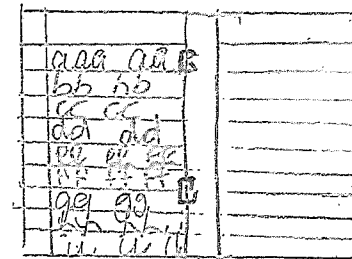 aaa aa
bb bb
cc cc
dd dd
ee ee ee
ff ff ff
gg gg